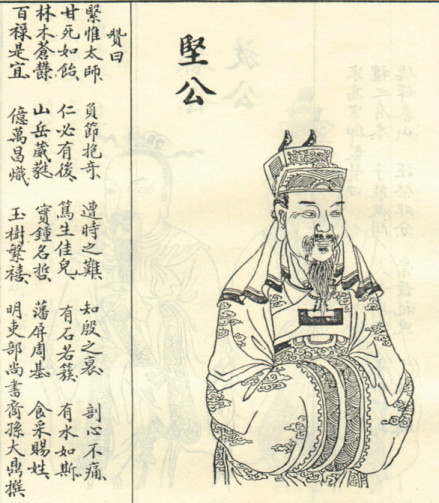 堅公
贊曰
繄惟太師、負節抱奇、遭時之難、知殷之衰、剖心不痛、
甘死如飴、仁必有後、篤生佳兒、有石若簇、有水如斯、
林木蒼鬱、山岳葳蕤、實鍾名哲、藩屏周基、食采賜姓、
百祿是宜、億萬昌熾、玉樹繁禧、明吏部尚書裔孫大鼎撰